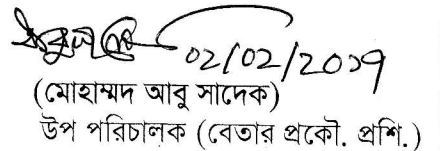 02/02/2017
(মোহাম্মদ আবু সাদেক)
উপ পরিচালক (বেতার প্রকৌ. প্রশি.)